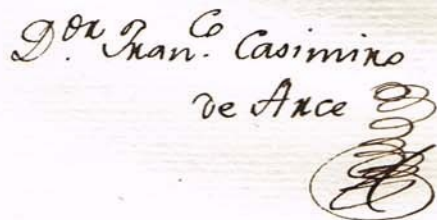 D.ᵒⁿ Franᶜᵒ. Casimiro
de Arce